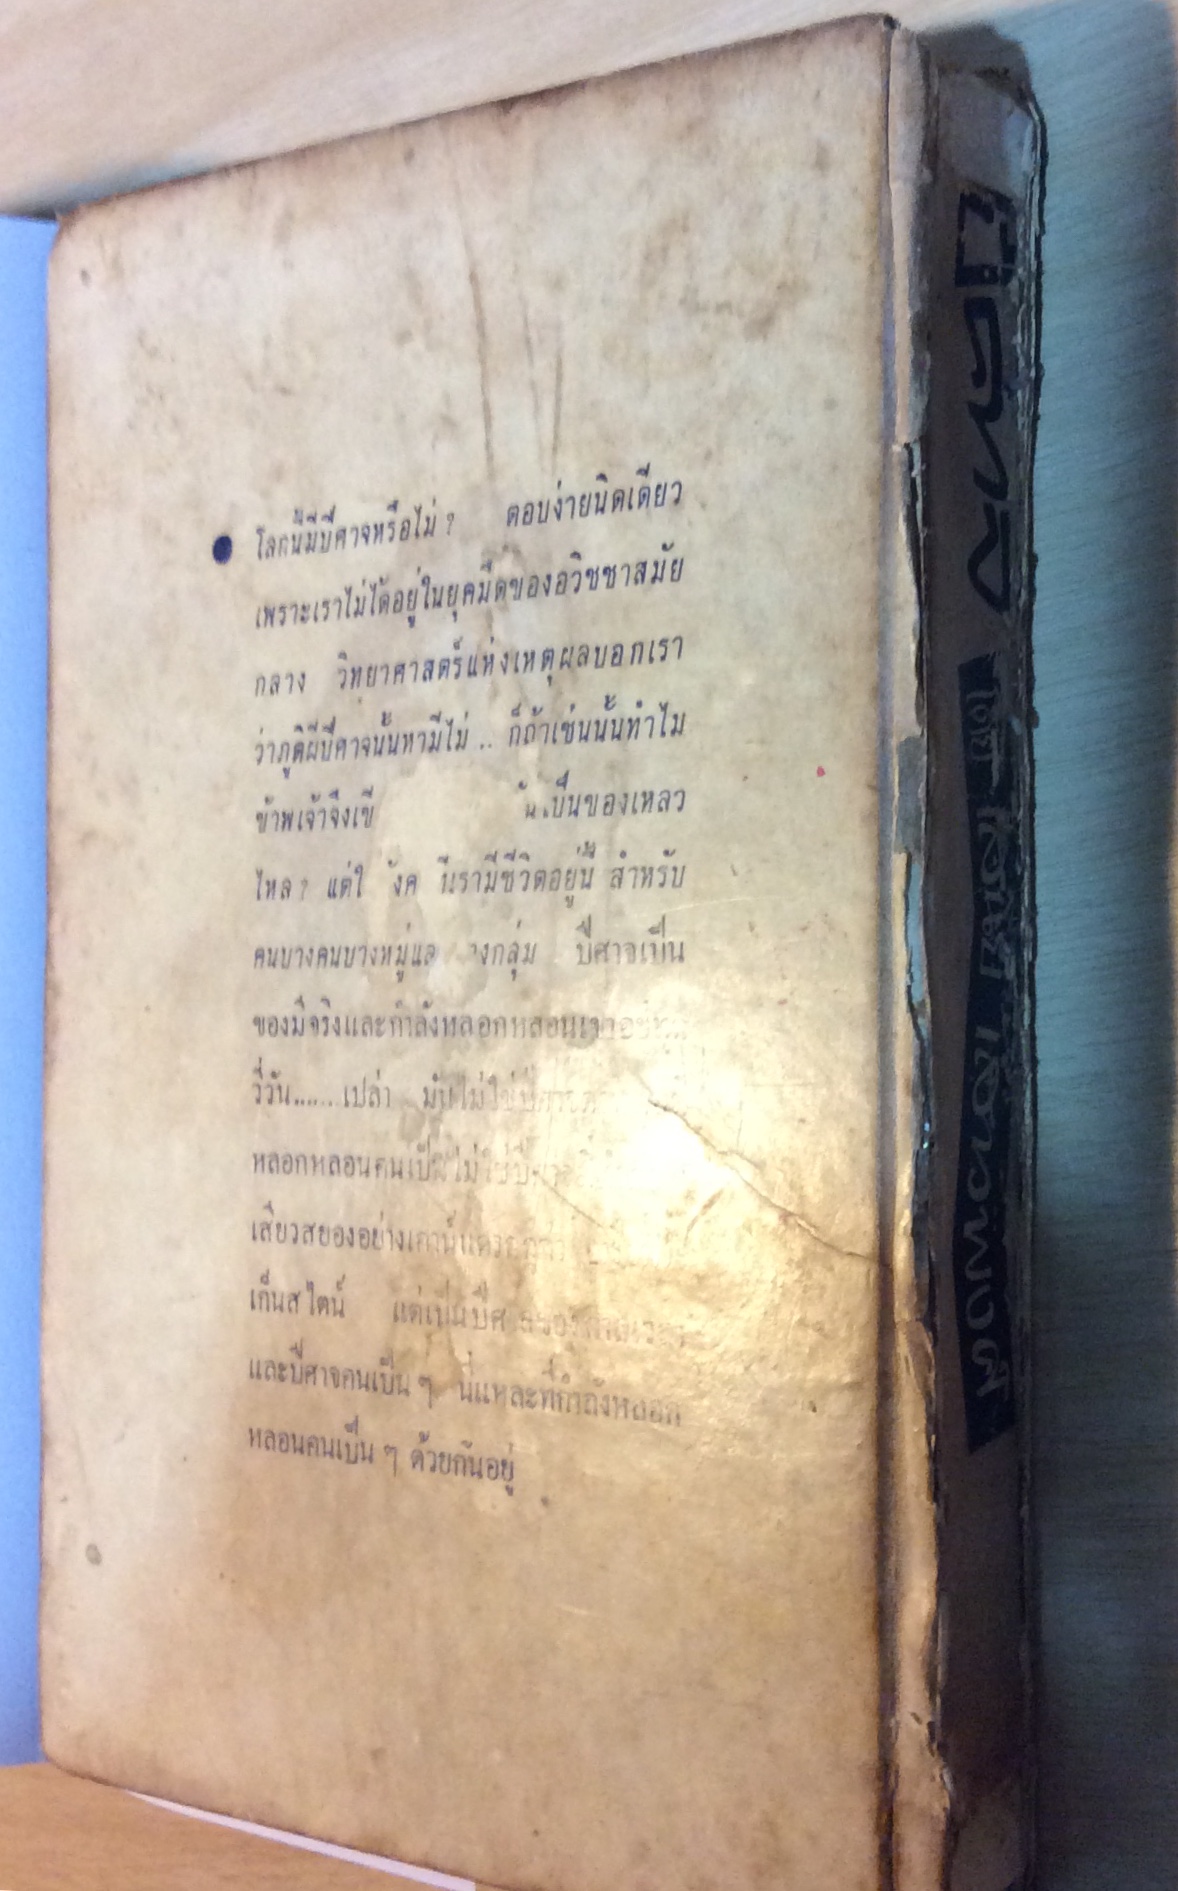 โลกนี้มีปีศาจหรือไม่ ? ตอบง่ายนิดเดียว
เพราะเราไม่ได้อยู่ในยุคมืดของอวิชชาสมัย
กลาง วิทยาศาสตร์แห่งเหตุผลบอกเรา
ว่าภูติผีปีศาจนั้นหามีไม่ .. ก็ถ้าเช่นนั้นทำไม
ข้าพเจ้าจึงเขี เป็นของเหลว
ไหล ? แต่ใ เรามีชีวิตอยู่นี้ สำหรับ
คนบางคนบางหมู่แล างกลุ่ม ปีศาจเป็น
ของมีจริงและกำลังหลอกหลอนเขาอยู่
วี่วัน...... เปล่า มันไม่ใช่ปีศาจ
หลอกหลอนคนเป็น ไม่ใช่ปีศาจ
เสียวสยองอย่าง
เก็นสไตน์ แต่เป็นปีศาจของกาลเวลา
และปีศาจคนเป็น ๆ นี่แหละที่กำลังหลอก
หลอนคนเป็น ๆ ด้วยกันอยู่
ปีศาจ
เสนีย์ เสาวพงศ์